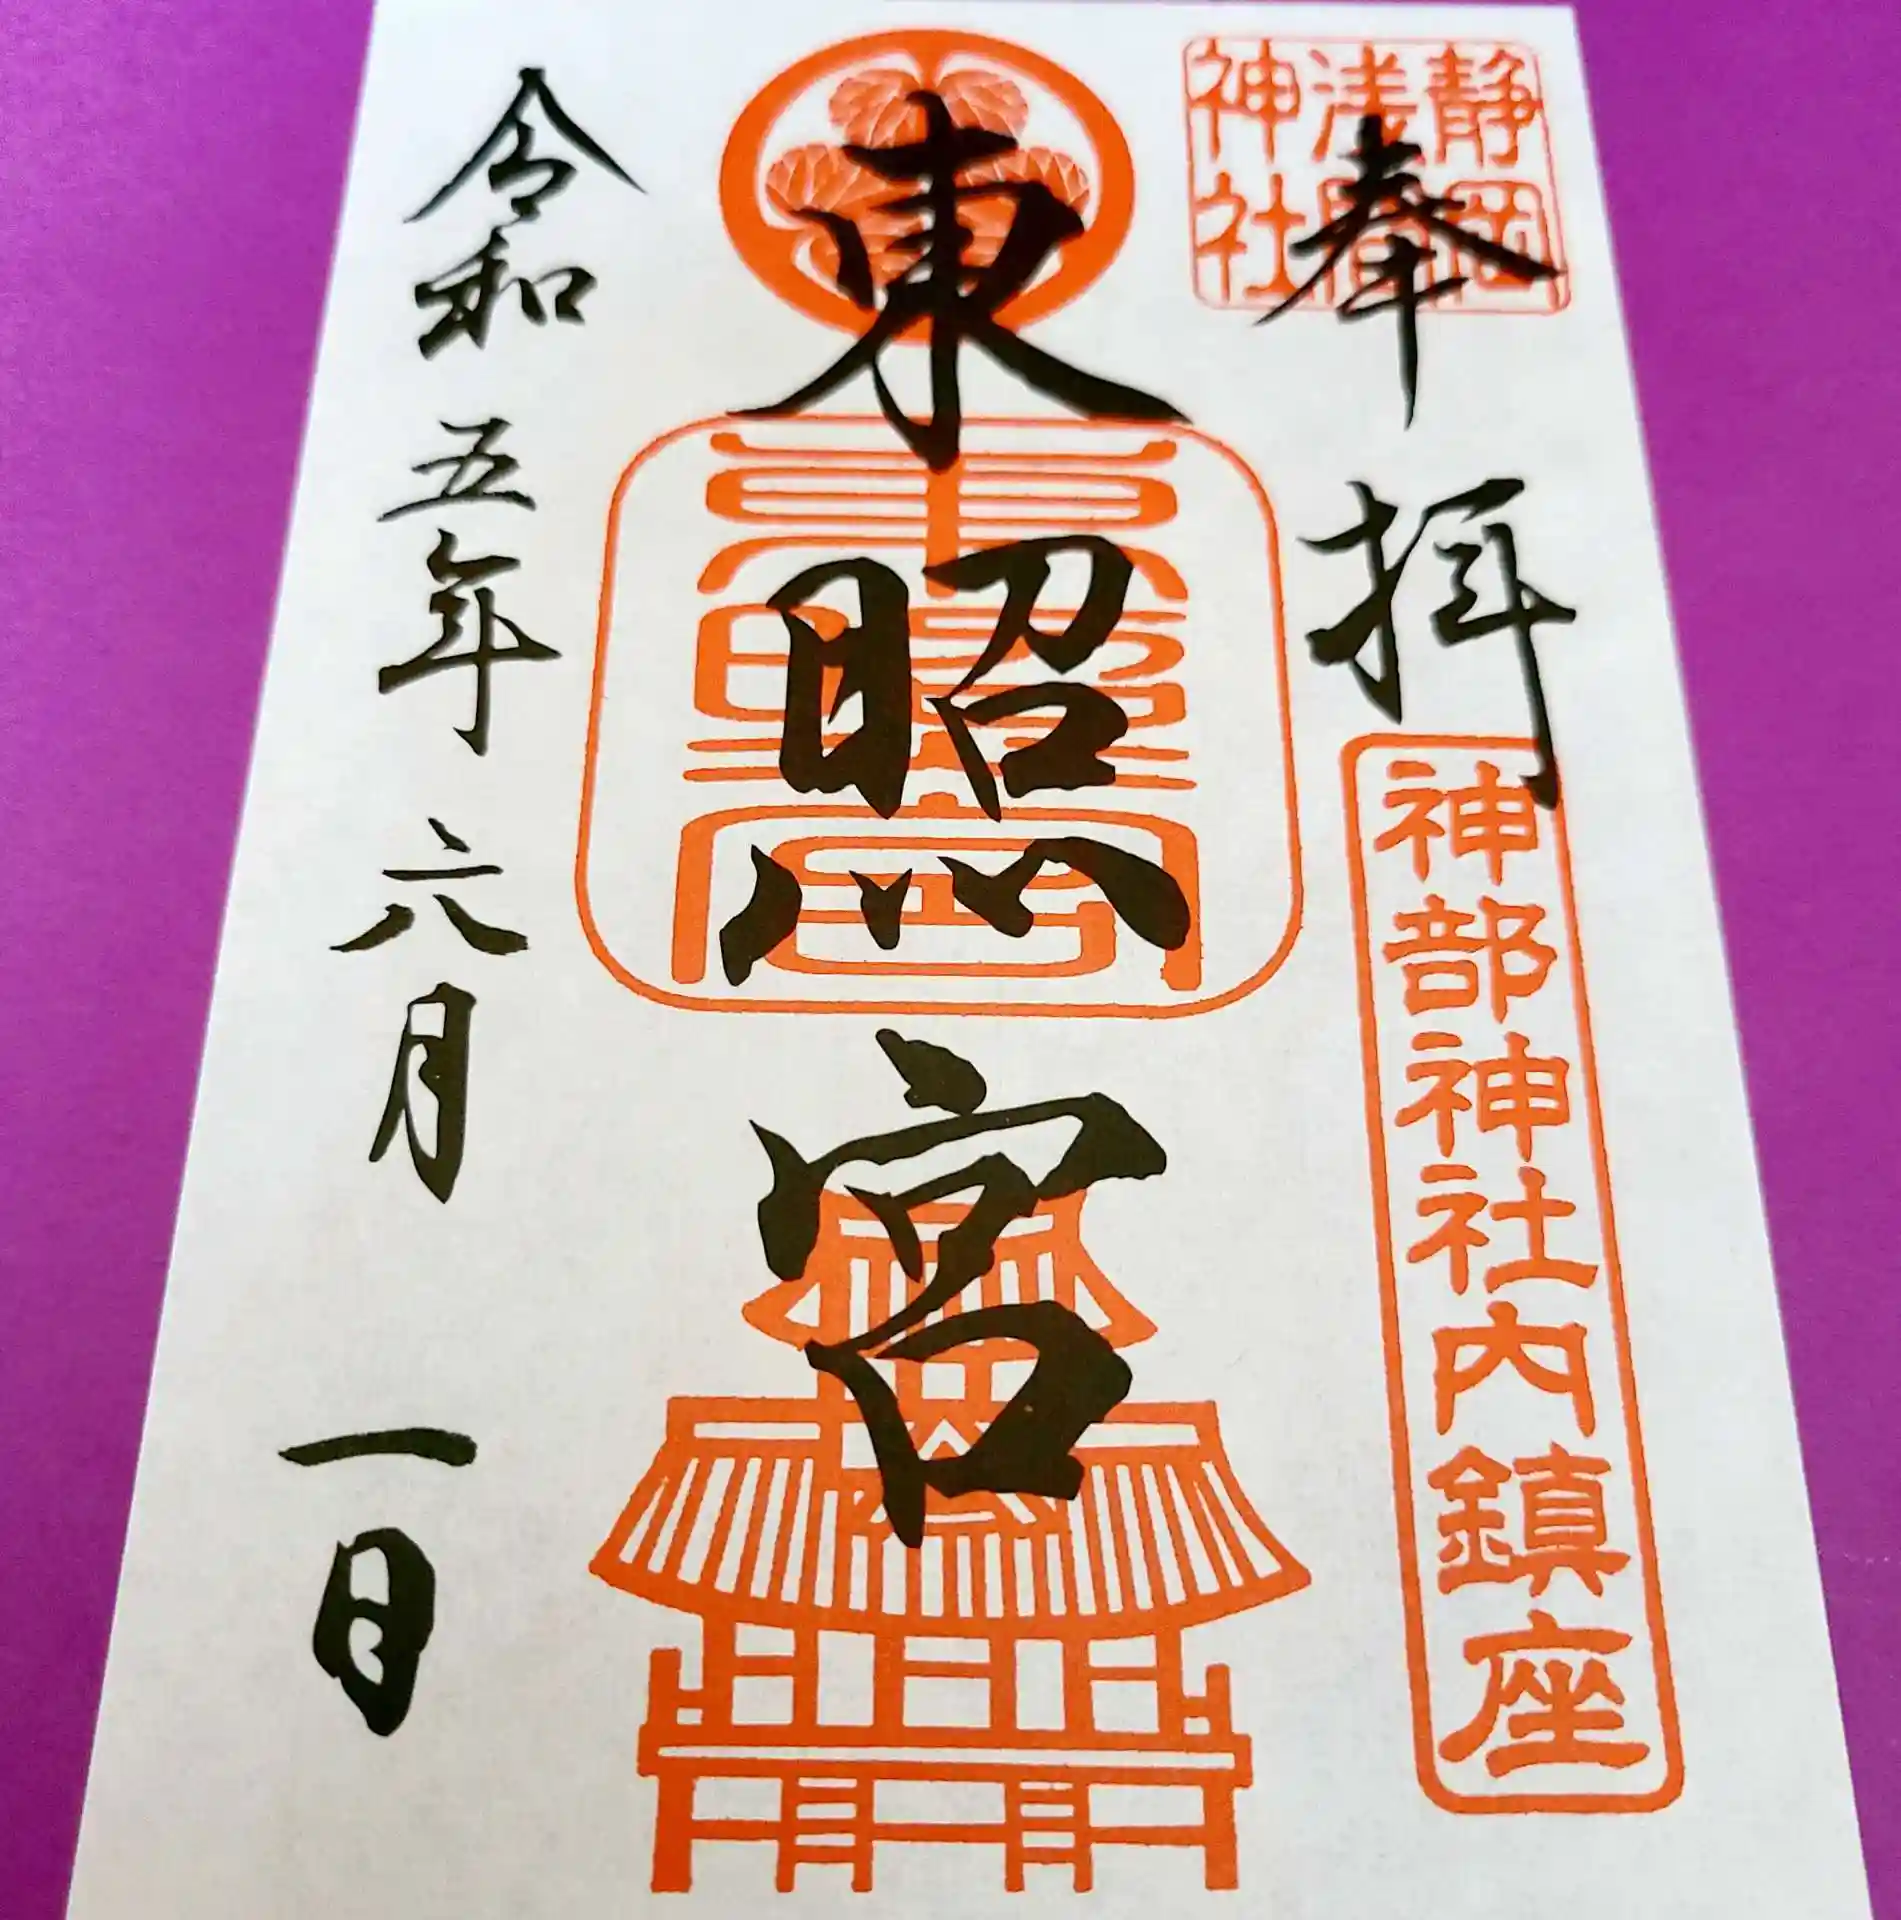 奉拝
静岡
浅間
神社
神部神社内鎮座
東照宮
東照宮
令和五年六月一日